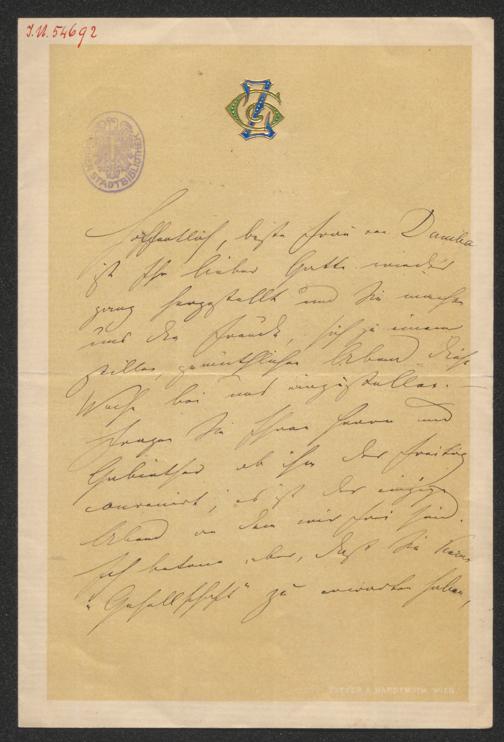 I.N. 54692
Hoffentlich, beste Frau von Dumba
ist Ihr lieber Gatte wieder
ganz hergestellt und Sie machen
uns die Freude, sich zu einem
stillen, gemüthlichen Abend diese
Woche bei uns einzustellen. –
Fragen Sie Ihren Herrn und
Gebiether ob ihm der Freitag
convenirt; es ist der einzige
Abend an dem wir frei sind.
Ich betone aber, daß Sie keine
"Gesellschaft" zu erwarten haben,
THEYER & HARDTMUTH, WIEN